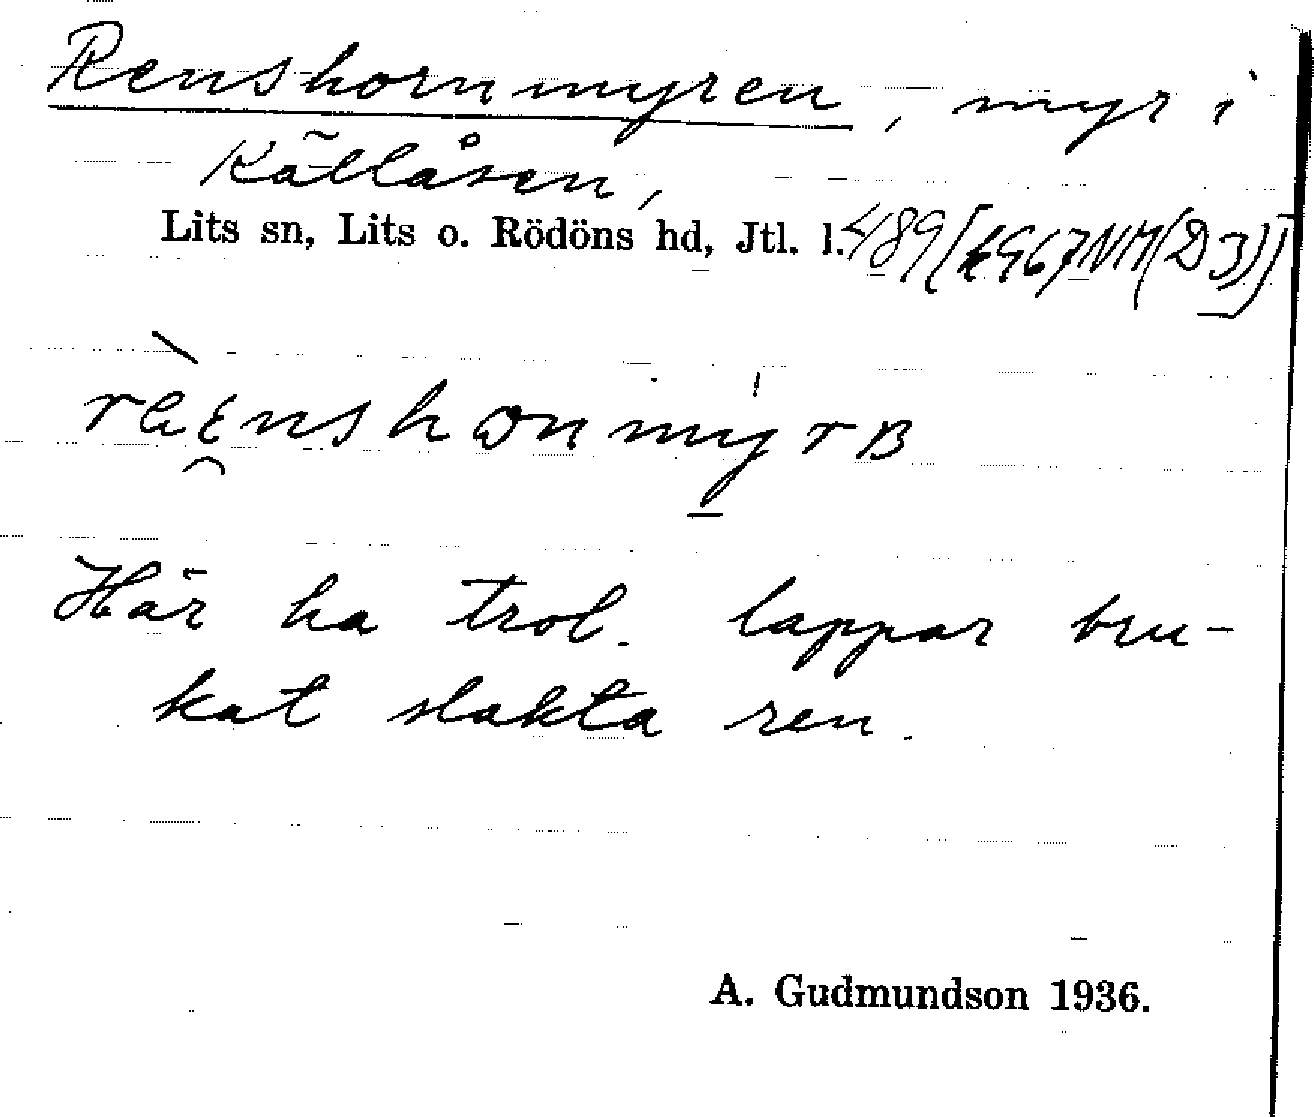 Renshornmyren, myr i
Källåsen,
Lits sn, Lits o. Rödöns hd, Jtl. l. 489
Här ha trol. lappar bru-
kat slakta ren.
A. Gudmundson 1936.